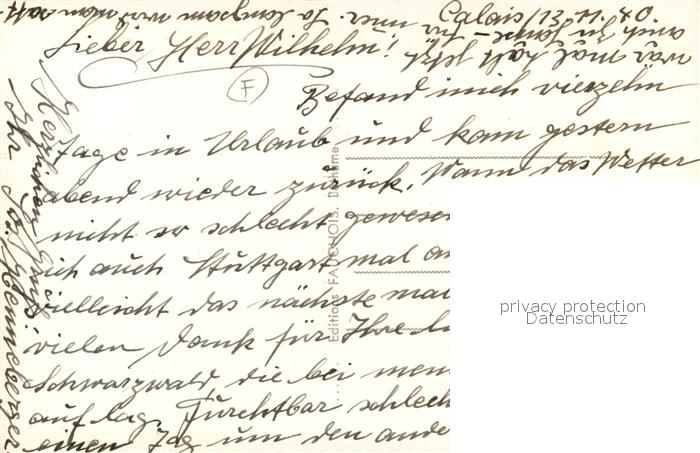 Calais/13.11.40.
Lieber Herr Wilhelm!
F
Befand mich vierzehn
Tage in Urlaub und kam gestern
abend wieder zurück. Wann das Wetter
nicht so schlecht gewesen
ich auch Stuttgart mal an
vielleicht das nächste mal
vielen Dank für Ihre l
Schwarzwald, die bei mein
auflag. Furchtbar schlech
einen Tag um den ande
Herzlichen Gruß!
Ihr
Editions FAUCHOIS, Béthune
privacy protection
Datenschutz